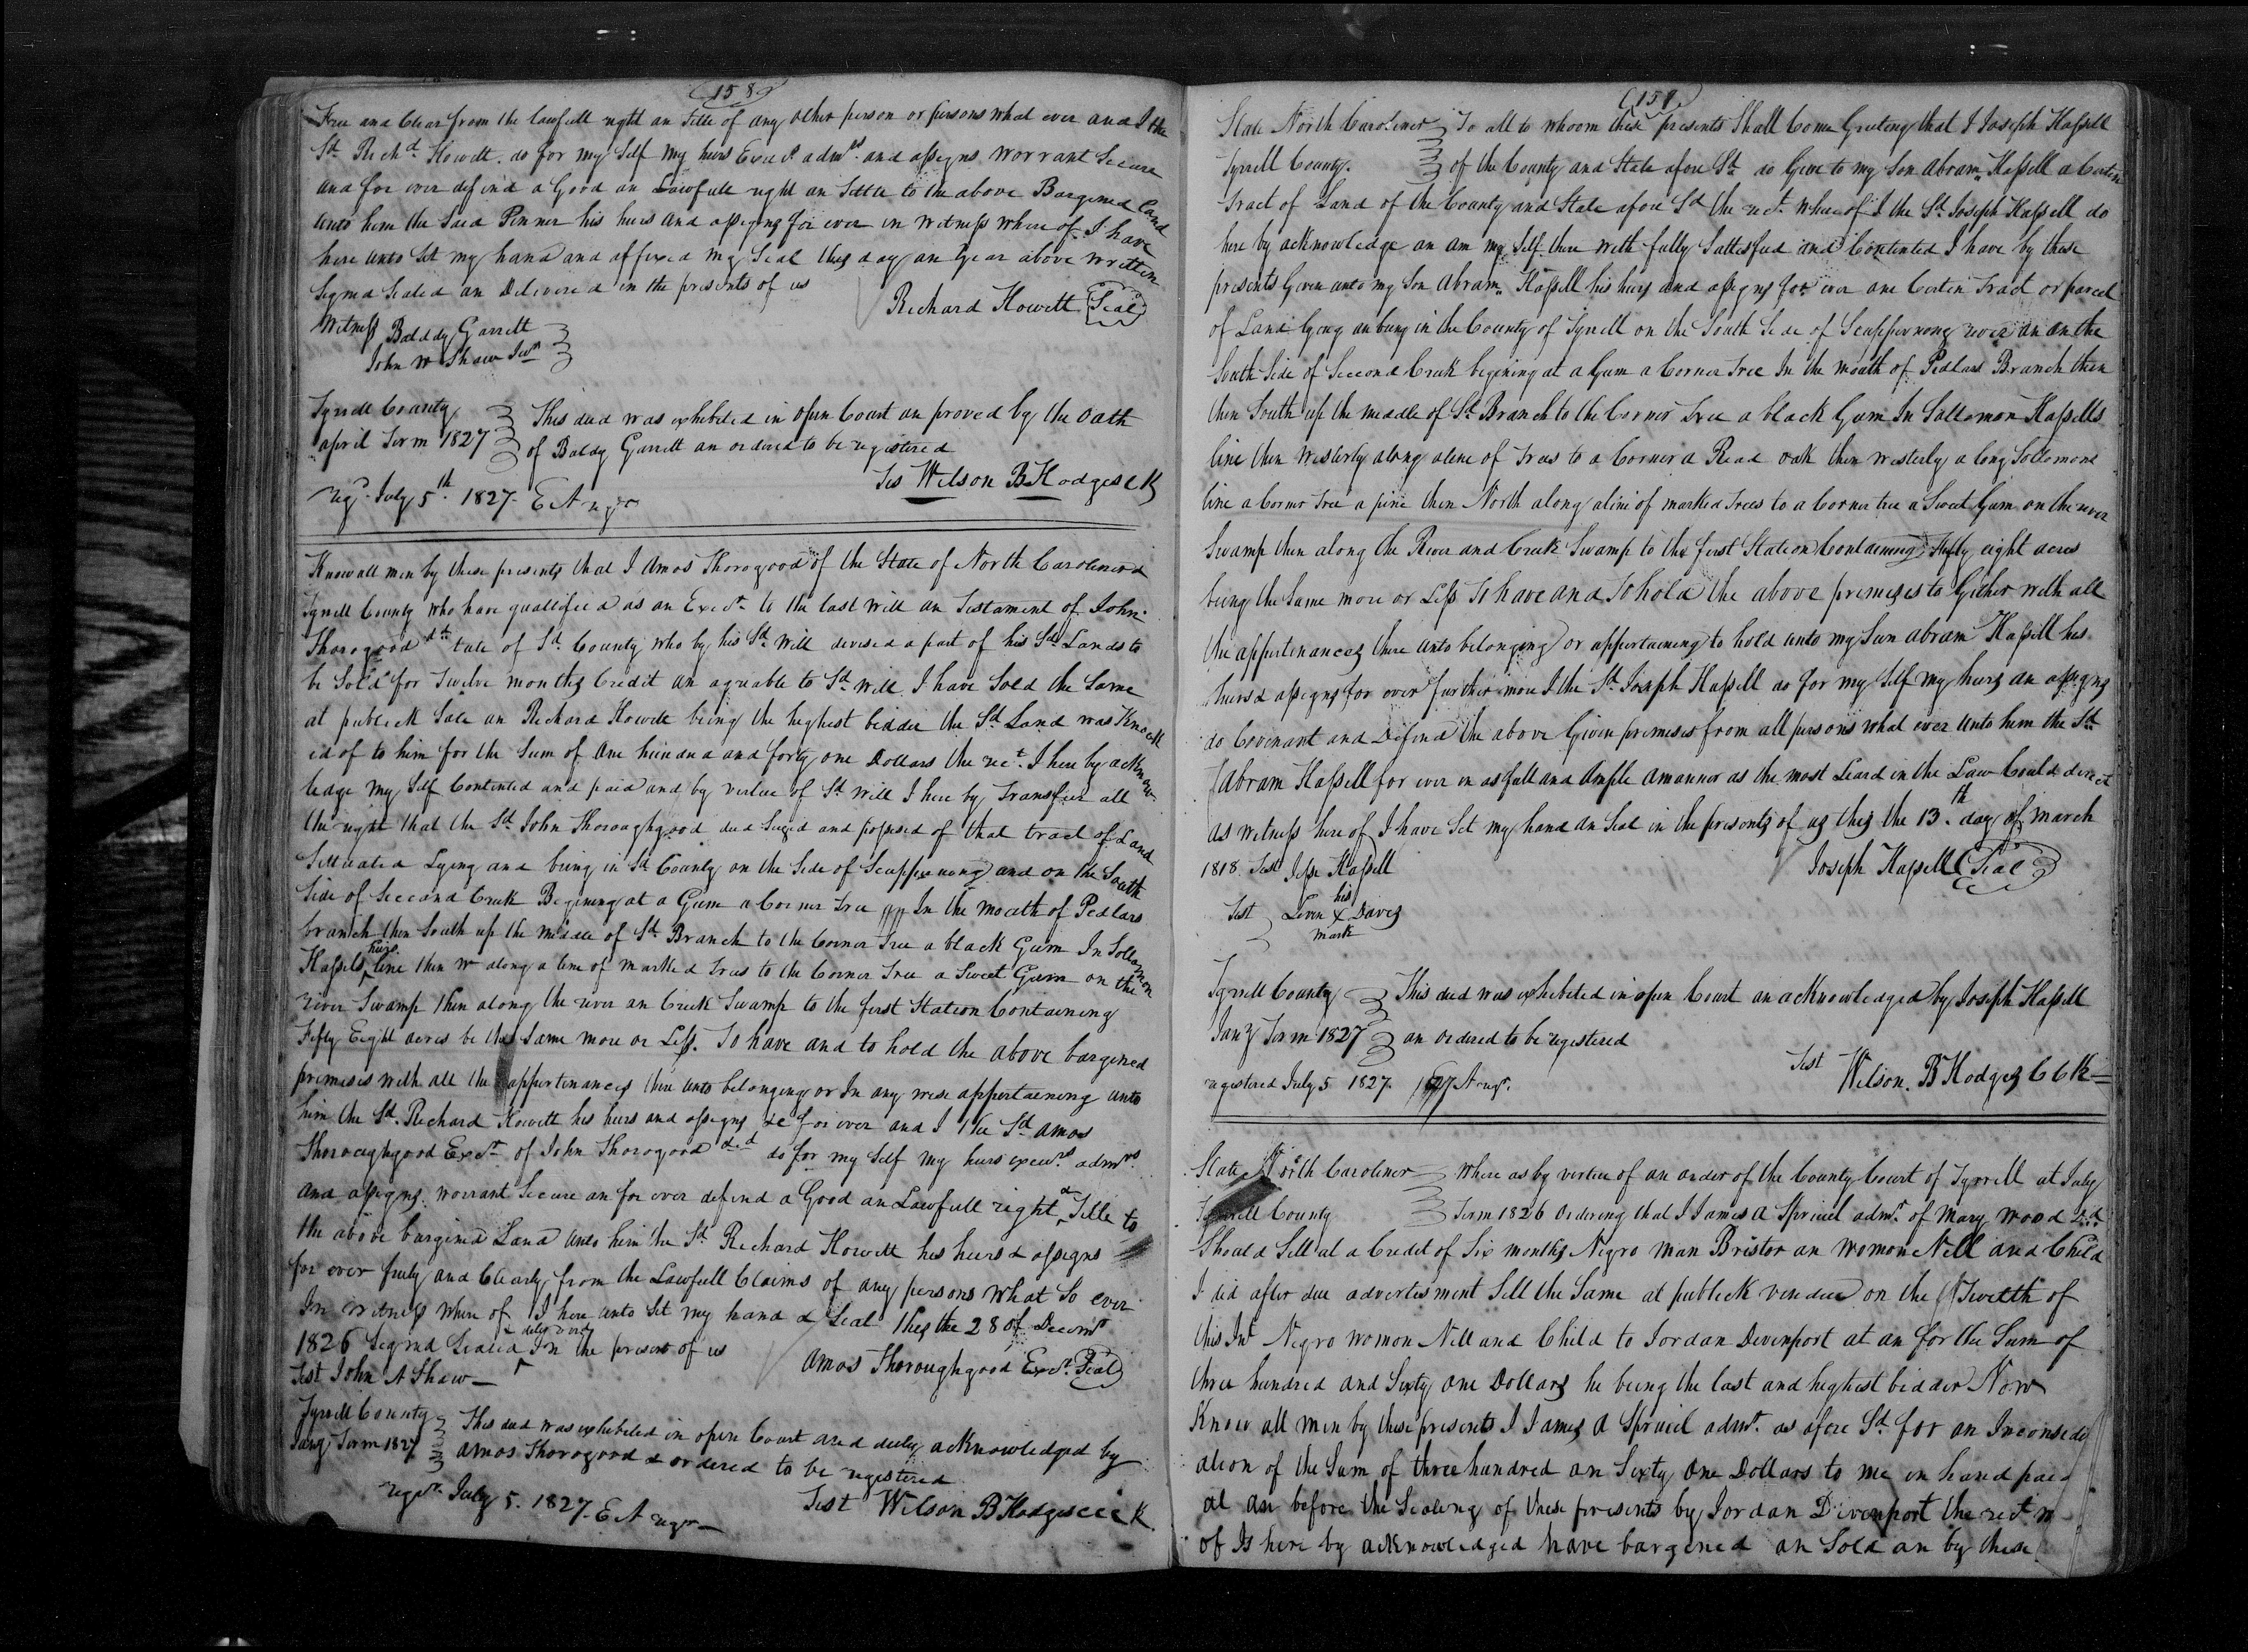 (158)
Free and Clear from the lawfull right an Title of any other person or persons what ever and I the
Sd Richd Howett do for my Self my heirs Exers admrs and assigns worrant Secure
and for ever defind a Good an Lawfull right an Tittle to the above Bargened Land
unto him the Said Penner his heirs and assigns for ever in witness where of I have
here unto Set my hand and affixed my Seal this day an year above written
Signed Sealed an Delivered in the presents of us
Richard Howett (Seal)
Witness Balddy Garrett
John W Shaw Jur
Tyrrell County
april Term 1827
This deed was exhebeted in open Court an proved by the oath
of Baldy Garrett an ordered to be registered
Tes Wilson B Hodges clk
regd July 5th 1827. E A regr
Know all men by these presents that I Amos Thorogood of the State of North Caroliner &
Tyrrell County who have quallified as an Exectr to the last will an Testament of John
Thorogood dd late of Sd County who by his Sd will devised a part of his Sd Lands to
be Sold for Twelve months Credit an agreable to Sd will I have Sold the Same
at publick Sale an Richard Howett being the highest bidder the Sd Land was Knock
ed of to him for the Sum of one hundred and forty one Dollars the rect I here by acknow
ledge my Self Contented and paid and by vertue of Sd will I here by Transfer all
the right that the Sd John Thoroughgood died Seized and possesed of that tract of Land
Sittuated Lying and being in Sd County on the Side of Scuppernong and on the South
Side of Second Creek Begining at a Gum a Corner Tree In the mouth of Pedlars
branch then South up the middle of Sd Branch to the Corner Tree a black Gum In Sollomon
Hassels heirs line then W along a line of marked Trees to the Corner Tree a Sweet Gum on the
river Swamp then along the river an Creek Swamp to the first Station Containing
Fifty Eight acres be the Same more or Less. To have and to hold the above bargened
premises with all the appertinances there unto belonging or In any wise appertaening unto
him the Sd Richard Howett his heirs and assigns &c for ever and I the Sd Amos
Thoroughgood Exectr of John Thorogood dcd do for my Self my heirs execurs admrs
and assigns worrant Secure an for ever defend a Good an Lawfull right & Title to
the above bargined Land unto him the Sd Richard Howett his heirs & assigns
for ever freely and Clearly from the Lawfull Claims of any persons what So ever
In witness where of I here unto Set my hand & Seal this the 28 of Decemr
1826 Signed Sealed & deliverd In the presents of us
Amos Thoroughgood Exectr (Seal)
Test John A Shaw
Tyrrell County
Jany Term 1827
This deed was exhebeted in open Court and duly acknowledged by
Amos Thorogood & ordered to be registered
Test Wilson B Hodges ccck
regd July 5. 1827. E A regr
(159)
State North Caroliner
Tyrrell County.
To all to whoom these presents Shall Come Greeting that I Joseph Hassell
of the County and State afore Sd do Give to my Son Abram Hassell a Certin
Tract of Land of the County and State afore Sd the rect where of I the Sd Joseph Hassell do
here by acknowledge an am my Self there with fully Sattesfied and Contented I have by these
presents Given unto my Son Abram Hassell his heirs and assigns for ever one Certin Tract or parcel
of Land lying an being in the County of Tyrrell on the South Side of Scuppernong river an on the
South Side of Second Creek begining at a Gum a Corner Tree In the mouth of Pedlars Branch then
then South up the middle of Sd Branch to the Corner Tree a black Gum In Sallomon Hassells
line then Westerly along aline of Trees to a Corner a Read oak then westerly along Sollomons
line a Corner Tree a pine then North along aline of marked Trees to a Corner tree a Sweet Gum on the river
Swamp then along the River and Creek Swamp to the first Station Containing Fifty eight acres
being the Same more or Less To have and To hold the above premises to Gether with all
the appertinances there unto belonging or appertaining to hold unto my Sun Abram Hassell his
heirs & assigns for ever further more I the Sd Joseph Hassell do for my Self my heirs an assigns
do Covenant and Defend the above Given premises from all persons what ever unto him the Sd
Abram Hassell for ever in as full and Ample a manner as the most Leard in the Law Could direct
as witness here of I have Set my hand an Seal in the presents of us this the 13th day of march
1818 Test Jesse Hassell
Joseph Hassell (Seal)
Test Leven his X mark Daves
Tyrrell County
Jany Term 1827
This deed was exhebeted in open Court an acknowledged by Joseph Hassell
an ordered to be registered
Test Wilson B Hodges CClk
registered July 5 1827. A regr.
State North Caroliner
Tyrrell County
Where as by vertue of an order of the County Court of Tyrrell at July
Term 1826 Ordering that I James A Spruiel admr of Mary Wood dcd
Should Sell at a Credit of Six months Negro man Bristor an womon Nell and Child
I did after due advertisment Sell the Same at publick vendue on the Twelth of
this Int Negro womon Nell and Child to Jordan Devenport at an for the Sum of
three hundred and Sixty one Dollars he being the last and highest bidder Now
Know all men by these presents I James A Spruiel admr as afore Sd for an Inconsedr
ation of the Sum of three hundred an Sixty one Dollars to me in hand paid
at an before the Sealing of these presents by Jordan Devenport the rect w
of Is here by acknowledged have bargened an Sold an by these